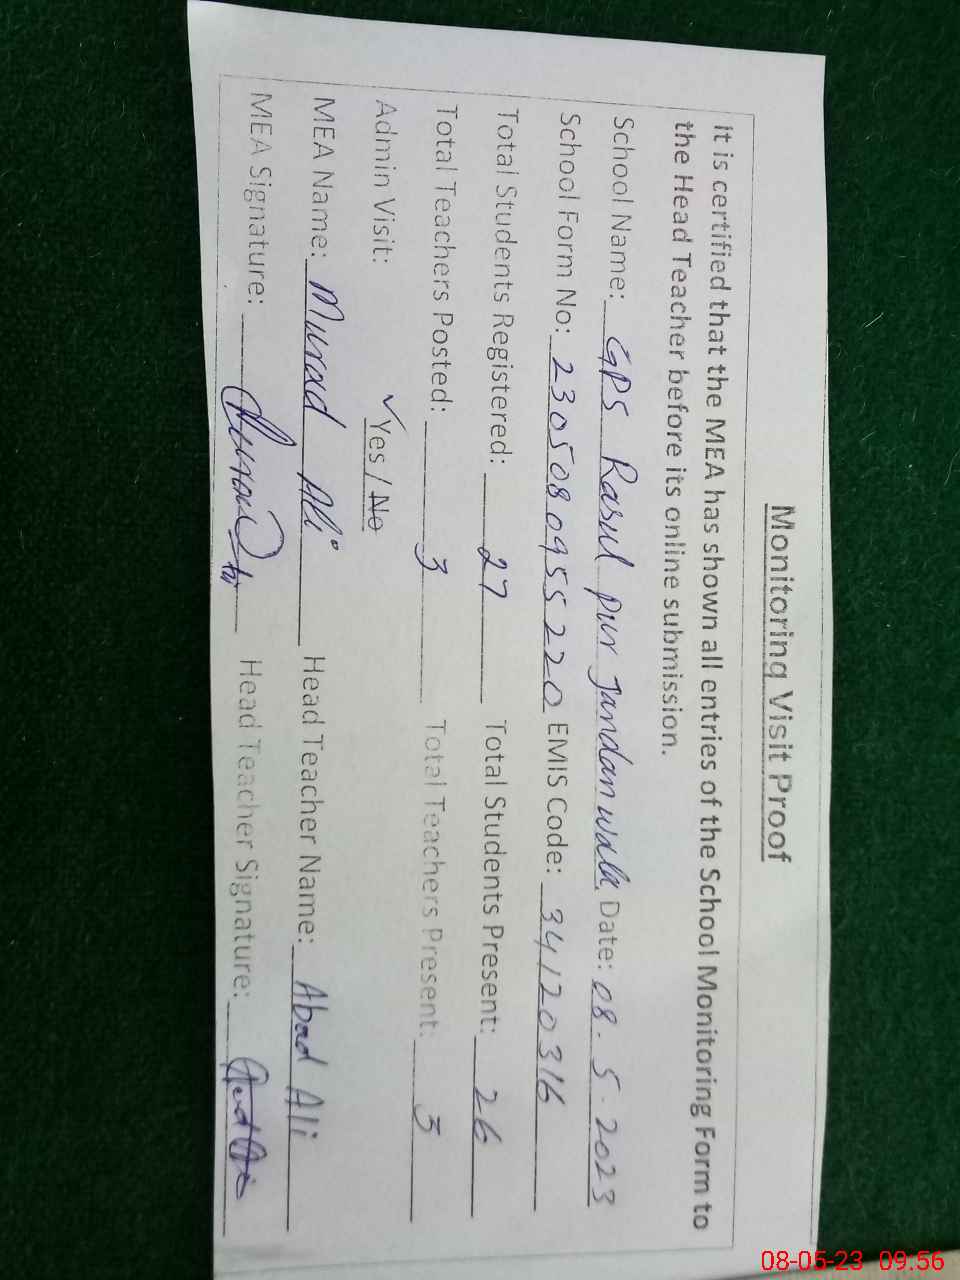 Monitoring Visit Proof
It is certified that the MEA has shown all entries of the School Monitoring Form to
the Head Teacher before its online submission.
School Name: GPS Rasul pur Jandanwala Date: 08.5.2023
School Form No: 2305080955220 EMIS Code: 34120316
Total Students Registered: 27 Total Students Present: 26
Total Teachers Posted: 3 Total Teachers Present: 3
Admin Visit: ✓Yes / No
MEA Name: Murad Ali Head Teacher Name: Abad Ali
MEA Signature: Head Teacher Signature:
08-05-23 09:56